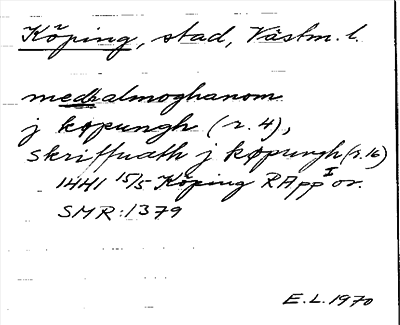 Köping, stad, Västm. l.
medh almoghanom
j køpungh (r. 4),
skriffwath j køpungh (r. 16)
1441 15/5 Köping RApp I or.
SMR: 1379
E.L. 1970